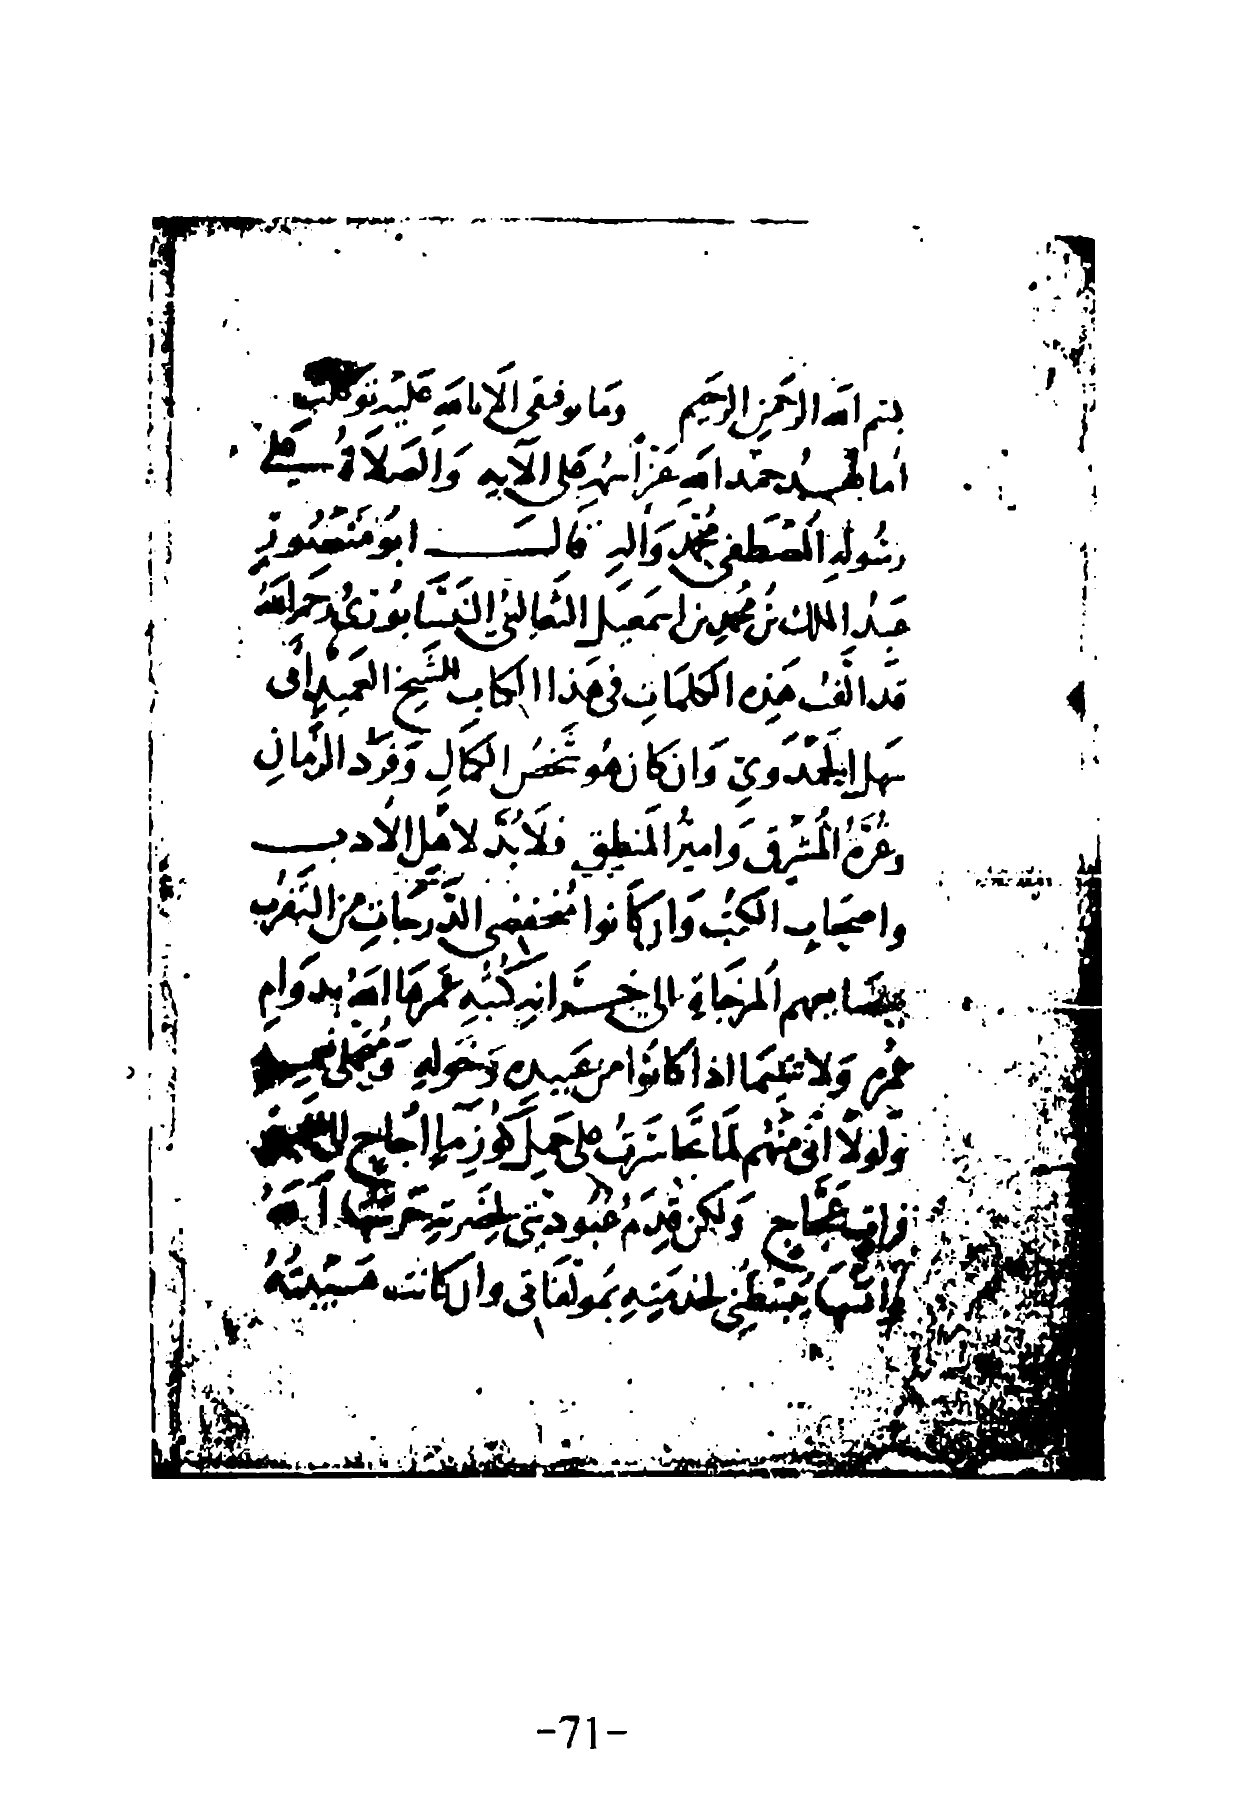 بسم الله الرحمن الرحيم وما توفيقي الا بالله عليه توكلت
اما بعد حمد الله عز اسمه على الآيه والصلاة على
رسوله المصطفى محمد وآله قال ابو منصور
عبد الملك بن محمد بن اسمعيل الثعالبي النيسابوري رحمه الله
قد الفت هذه الكلمات في هذا الكتاب للشيخ العميد ابي
سهل الحمدوي وان كان هو شخص الكمال وفرد الزمان
وغرة المشرق وامير المنطق فلا بد لاهل الادب
واصحاب الكتب وان كانوا منخفضي الدرجات من التقرب
ببضايعهم المزجاة الى خزانه كتبه عمرها الله بدوام
عمره ولا سيما اذا كانوا من عبيده وخوله
ولولا انى منهم لما تجاسرت على حمل كوز ماء اجاج
ولكن قدم عبوديتي لحضرته حرسها الله
وانسها لخدمته بمولفاتي وان كانت
-71-